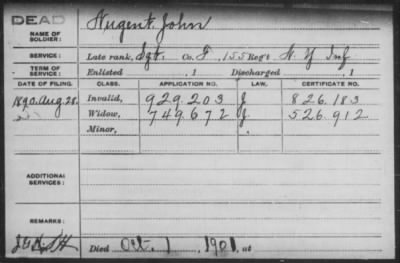 DEAD
NAME OF SOLDIER: Nugent, John
SERVICE: Late rank, Sgt. Co. F, 155 Reg't N. Y. Inf
TERM OF SERVICE: Enlisted , 1 Discharged , 1
DATE OF FILING. CLASS. APPLICATION NO. LAW. CERTIFICATE NO.
1890. Aug. 28. Invalid, 929.203 J 826.183
Widow, 749.672 J. 526.912
Minor,
ADDITIONAL SERVICES:
REMARKS:
Died Oct. 1, 1901, at